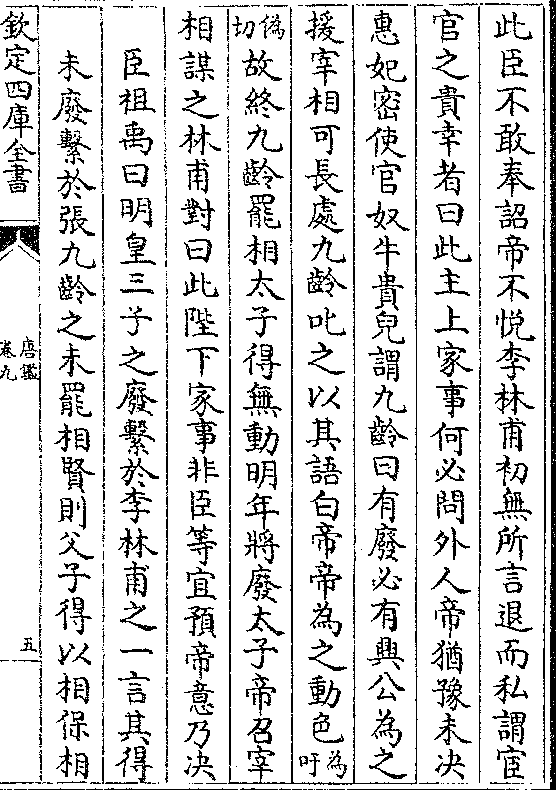 此臣不敢奉詔帝不悅李林甫初無所言退而私謂宦
官之貴幸者曰此主上家事何必問外人帝猶豫未決
惠妃密使官奴牛貴兒謂九齡曰有廢必有興公為之
援宰相可長處九齡叱之以其語白帝帝為之動色為吁
偽切故終九齡罷相太子得無動明年將廢太子帝召宰
相謀之林甫對曰此陛下家事非臣等宜預帝意乃决
臣祖禹曰明皇三子之廢繫於李林甫之一言其得
未廢繫於張九齡之未罷相賢則父子得以相保相
欽定四庫全書
唐鑑
卷九
五